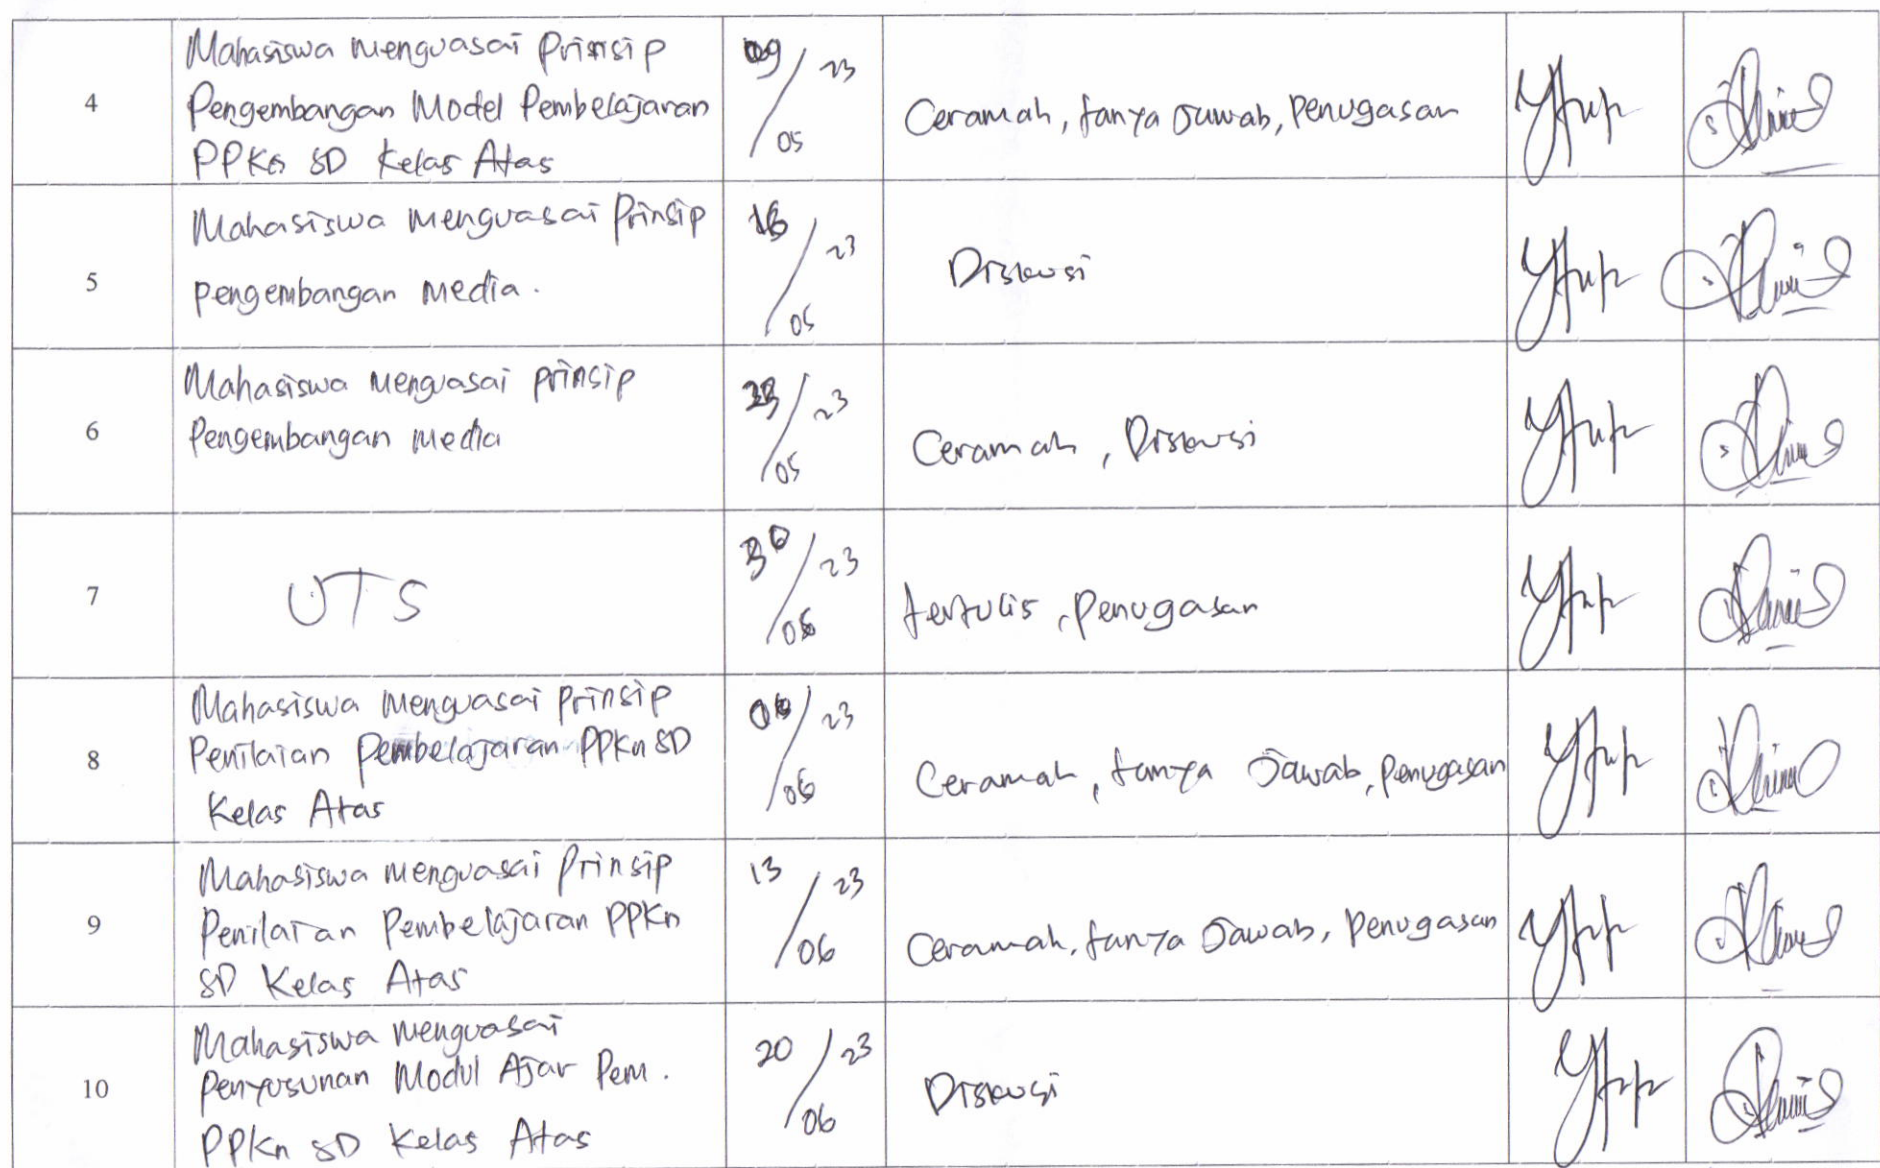 4
Mahasiswa menguasai prinsip
Pengembangan Model Pembelajaran
PPKn SD Kelas Atas
09/23
05
Ceramah, tanya Jawab, Penugasan
5
Mahasiswa menguasai Prinsip
pengembangan media.
16/23
05
Diskusi
6
Mahasiswa menguasai prinsip
Pengembangan media
23/23
05
Ceramah, Diskusi
7
UTS
30/23
tertulis, penugasan
8
Mahasiswa menguasai prinsip
Penilaian pembelajaran PPKn SD
Kelas Atas
06/23
06
Ceramah, tanya Jawab, penugasan
9
Mahasiswa menguasai Prinsip
Penilaian Pembelajaran PPKn
SD Kelas Atas
13/23
06
Ceramah, tanya Jawab, Penugasan
10
Mahasiswa menguasai
Penyusunan Modul Ajar Pem.
PPKn SD Kelas Atas
20/23
06
Diskusi